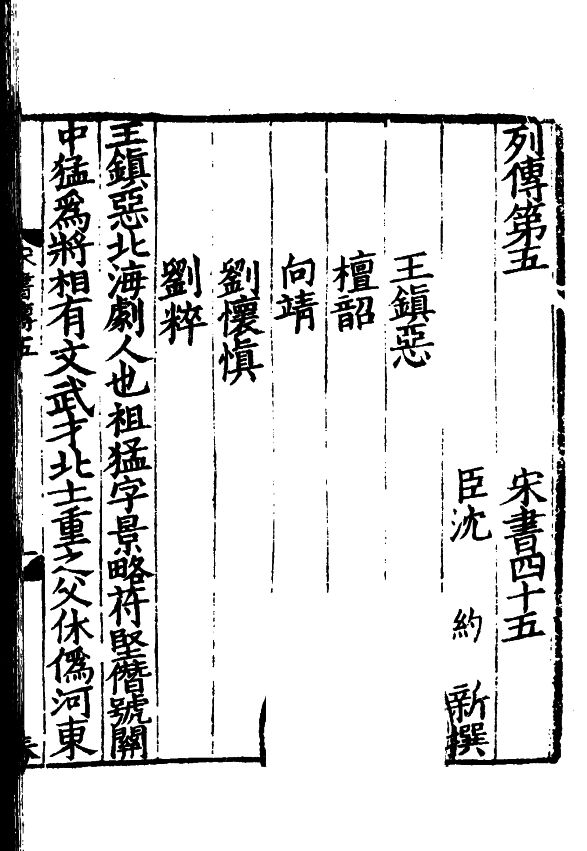 列傳第五 宋書四十五
臣沈 約 新撰
王鎮惡
檀韶
向靖
劉懷慎
劉粹
王鎮惡北海劇人也祖猛字景略苻堅僭號關
中猛爲將相有文武才北土重之父休僞河東